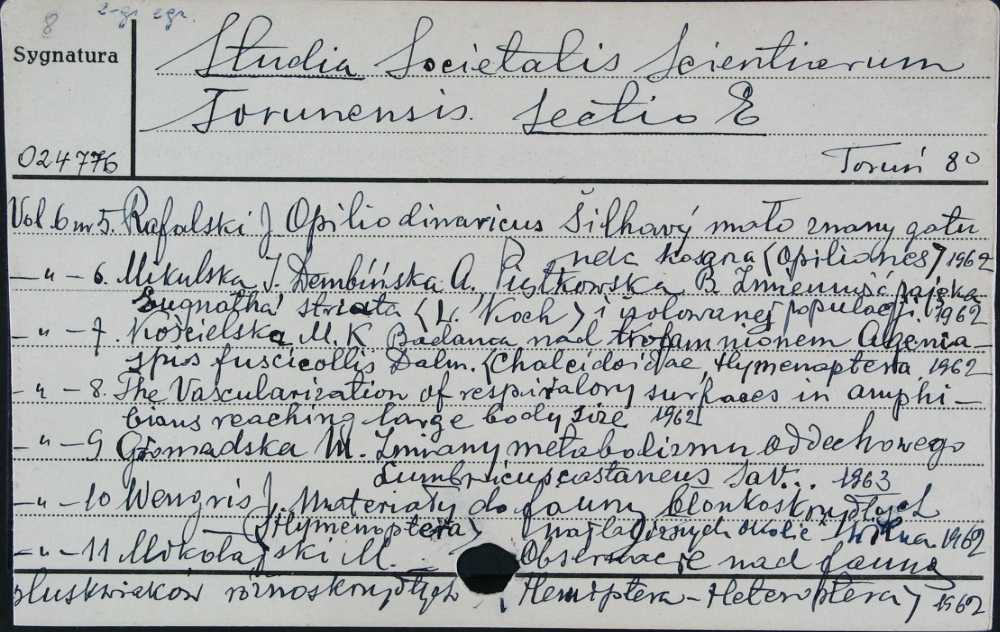 8 2-gi egz.
Sygnatura
Studia Societatis Scientiarum
Torunensis. Sectio E
024776
Toruń 8°
Vol. 6 nr 5. Rafalski J. Opilio dinaricus Šilhavý mało znany gatu
nek kosarza (Opiliones) 1962
—„— 6. Mikulska J. Dembińska A. Piątkowska B. Zmienność pająka
Zugnatha striata (L. Koch) i izolowanej populacji. 1962
—„— 7. Kościelska M. K. Badania nad trofamnionem Agenia-
spis fuscicollis Dalm. (Chalcidoidae, Hymenoptera, 1962
—„— 8. The Vascularization of respiratory surfaces in amphi-
bians reaching large body size 1962
—„— 9 Gromadska M. Zmiany metabolizmu oddechowego
Lumbricus castaneus Sav.. 1963
—„— 10 Wengris J. Materiały do fauny błonkoskrzydłych
(Hymenoptera) najbliższych okolic Wilna 1962
—„— 11 Mikołajski M. Obserwacje nad fauną
pluskwiaków różnoskrzydłych (Hemiptera-Heteroptera) 1962